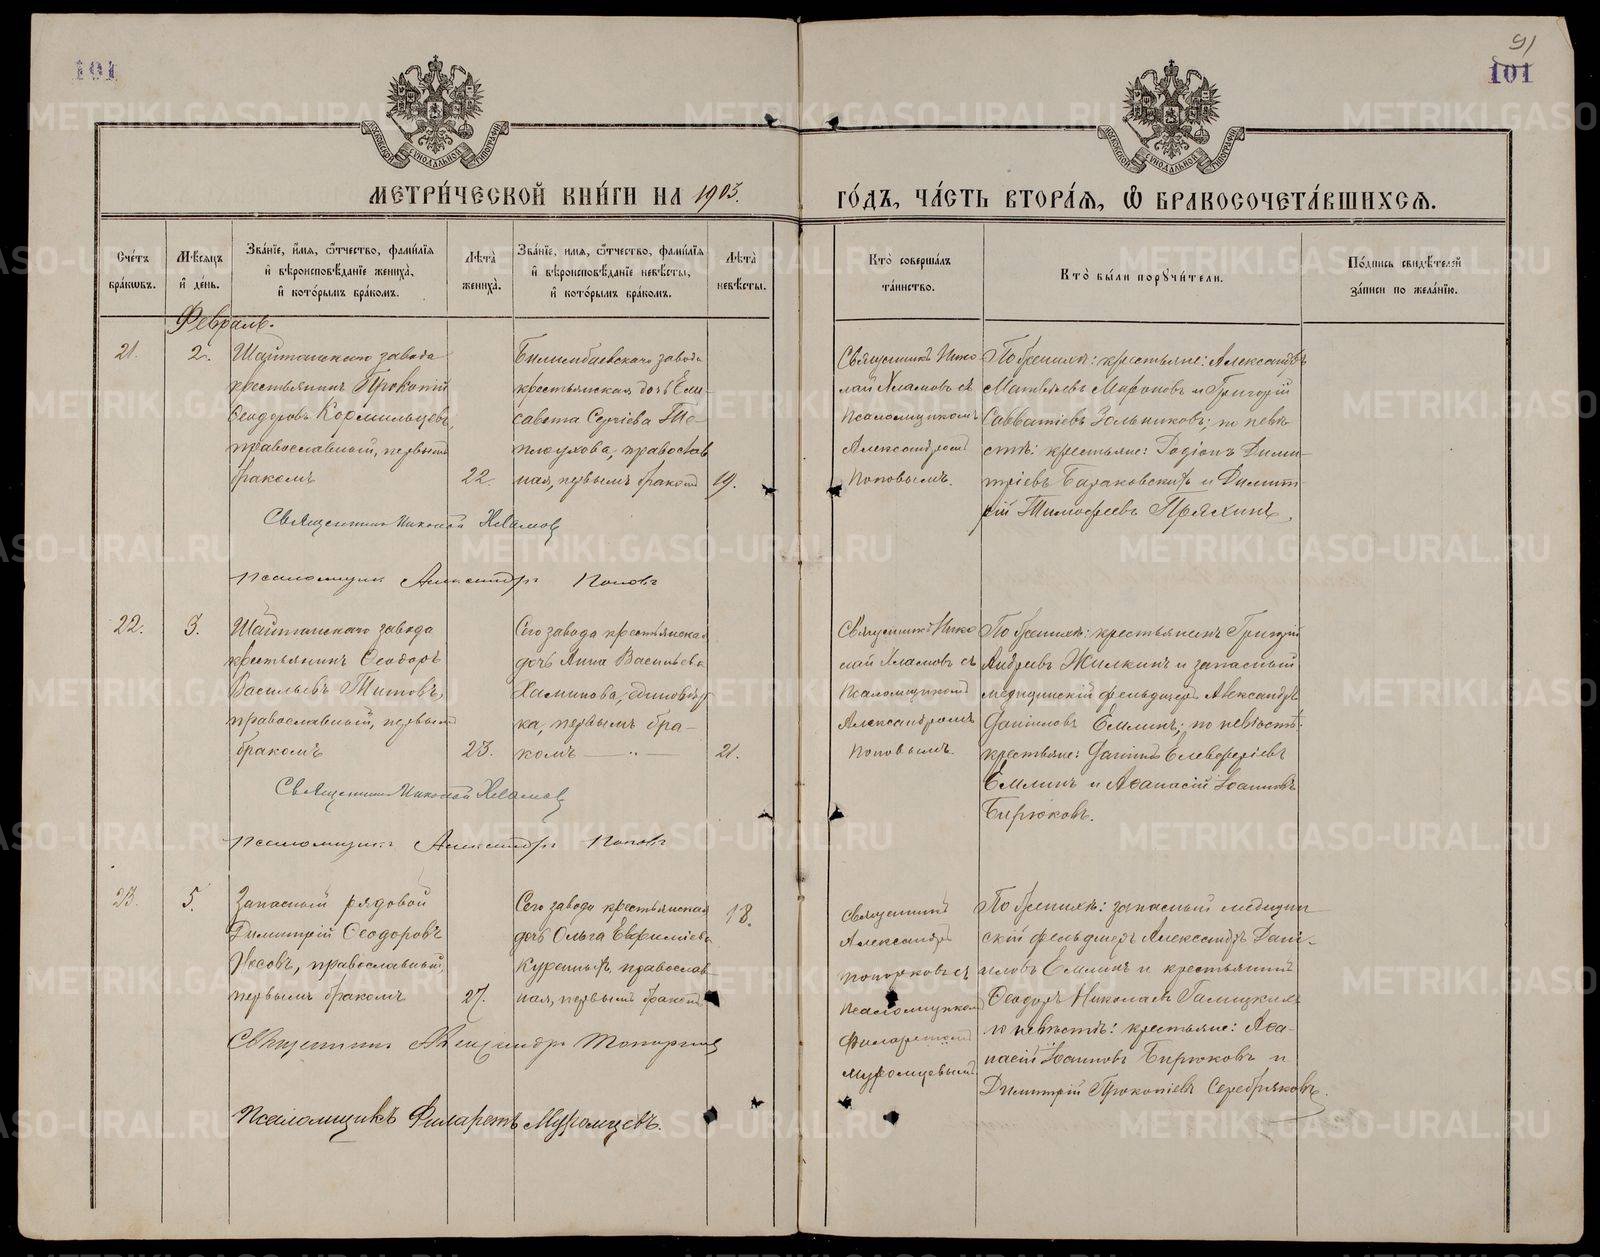 101
91
101
МОСКОВСКОЙ СУНОДАЛЬНОЙ ТИПОГРАФІИ
МОСКОВСКОЙ СУНОДАЛЬНОЙ ТИПОГРАФІИ
МЕТРИ́ЧЕСКОЙ КНИ́ГИ НА 1903.
ГО́ДЪ, ЧА́СТЬ ВТОРА́Я, Ѡ БРАКОСОЧЕТА́ВШИХСЯ.
Сче́тъ
бра́кѡвъ.
Мѣ́сяцъ
и҆ де́нь.
Зва́нїе, и҆́мя, ѻ҆́тчество, фами́лїя
и҆ вѣроисповѣ́данїе жениха̀,
и҆ кото́рымъ бра́комъ.
Лѣ́та
жениха̀.
Зва́нїе, и҆мя, ѻ҆́тчество, фами́лїя
и҆ вѣроисповѣ́данїе невѣ́сты,
и҆ кото́рымъ бра́комъ.
Лѣ́та
невѣ́сты.
Кто̀ соверша́лъ
та́инство.
Кто̀ бы́ли порꙋчи́тели.
По́дпись свидѣ́телей
за́писи по жела́нїю.
Февраль.
21.
2.
Шайтанскаго завода
крестьянинъ Прокопій
Ѳеодоровъ Кормильцевъ,
православный, первымъ
бракомъ
22.
Билимбаевскаго завода
крестьянская дочь Ели-
савета Сергіева Те-
плоухова, православ
ная, первымъ бракомъ
19.
Священникъ Нико
лай Хламовъ съ
Псаломщикомъ
Александромъ
Поповымъ.
По женихѣ: крестьяне: Александръ
Матвѣевъ Мироновъ и Григорій
Савватіевъ Зольниковъ; по невѣ
стѣ: крестьяне: Родіонъ Дими-
тріевъ и Димит-
рій Тимоѳеевъ Пряхинъ.
Священникъ Николай Хламовъ
Псаломщикъ Александръ Поповъ
22.
3.
Шайтанскаго завода
крестьянинъ Ѳеодоръ
Васильевъ Титовъ,
православный, первымъ
бракомъ
23.
Сего завода крестьянская
дочь Анна Васильева
Халимова, единовѣр
ка, первымъ бра-
комъ — „ —
21.
Священникъ Нико
лай Хламовъ съ
Псаломщикомъ
Александромъ
Поповымъ.
По женихѣ: крестьянинъ Григорій
Андреевъ Жилкинъ и запасный
медицинскій фельдшеръ Александръ
Даніиловъ Емлинъ; по невѣстѣ:
крестьяне: Даніилъ Елевѳеріевъ
Емлинъ и Аѳанасій Іоанновъ
Бирюковъ.
Священникъ Николай Хламовъ
Псаломщикъ Александръ Поповъ
23.
5.
Запасный рядовой
Димитрій Ѳеодоровъ
Носовъ, православный,
первымъ бракомъ
27.
Сего завода крестьянская
дочь Ольга Евфиміева
православ-
ная, первымъ бракомъ
18.
Священникъ
Александръ
Топорковъ съ
Псаломщикомъ
Филаретомъ
Муромцевымъ
По женихѣ: запасный медицин
скій фельдшеръ Александръ Дані-
иловъ Емлинъ и крестьянинъ
Ѳеодоръ Николаевъ Галицкихъ
по невѣстѣ: крестьяне: Аѳа-
насій Іоанновъ Бирюковъ и
Димитрій Прокопіевъ Серебряковъ.
Священникъ Александръ Топорковъ
Псаломщикъ Филаретъ Муромцевъ.
METRIKI.GASO-URAL.RU